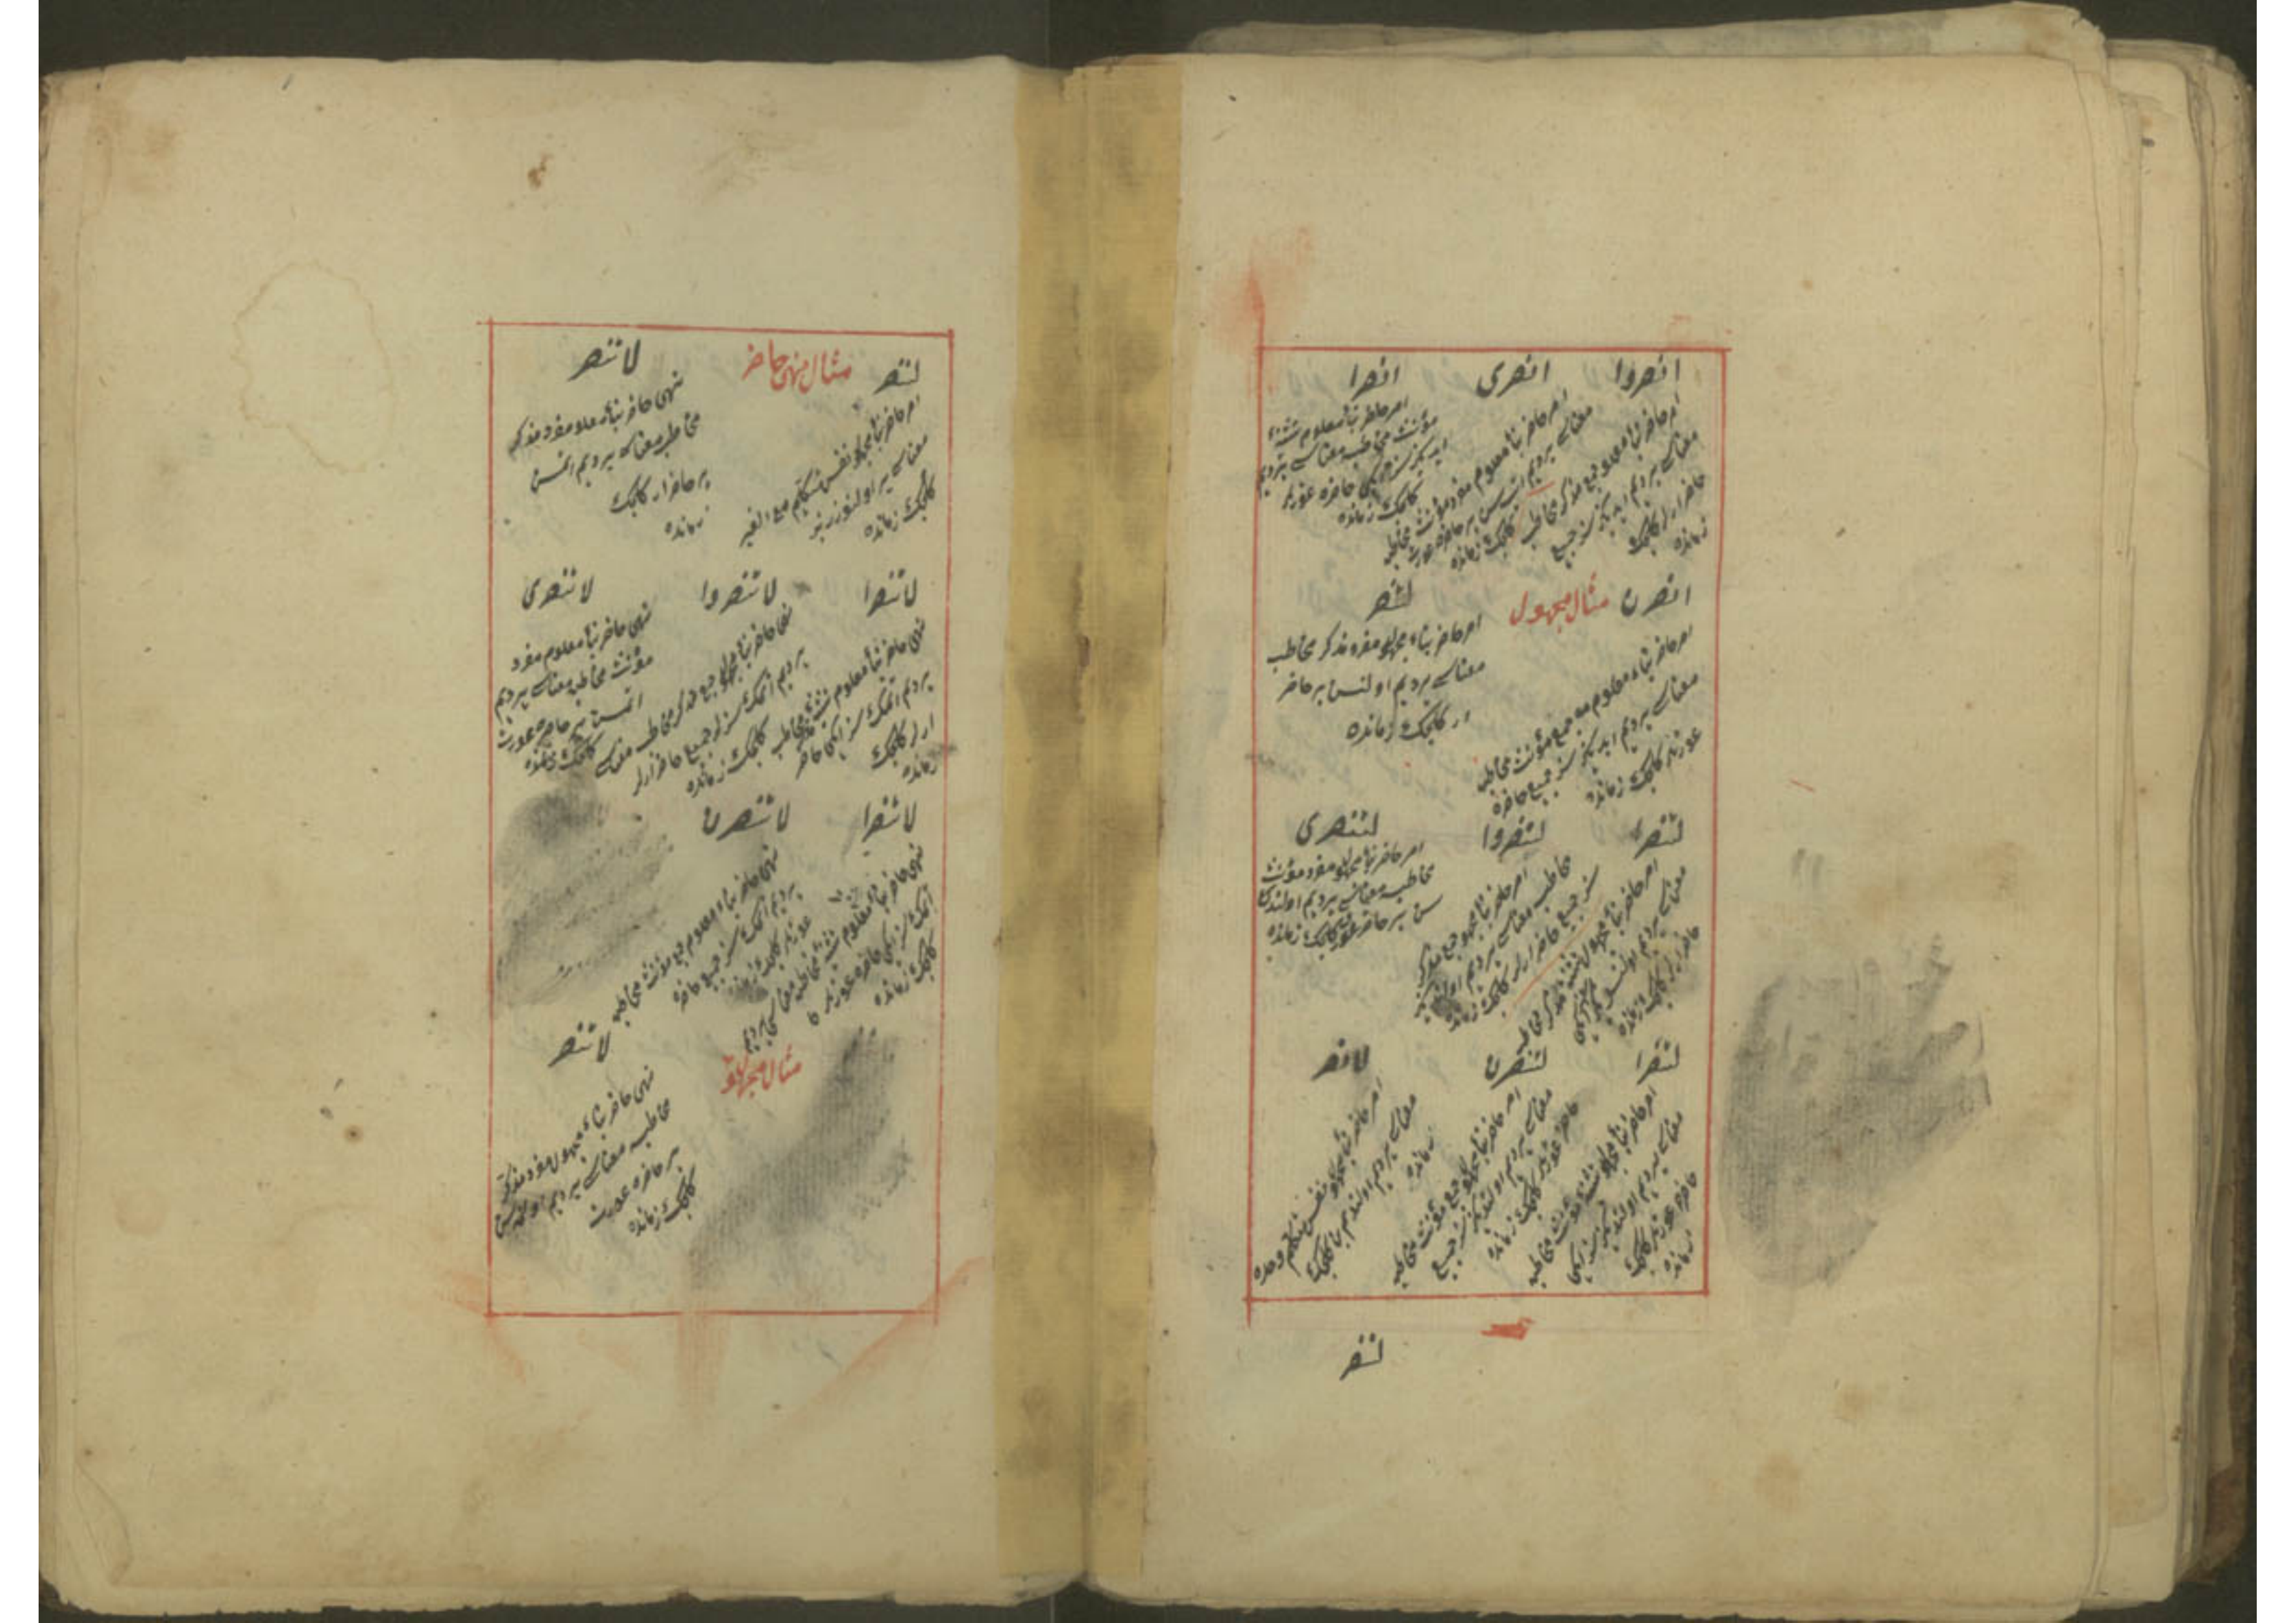 انصروا
امر حاضر بناء معلوم جمع مذكر مخاطب
معناسى يرديم ايدىكز سز جميع
حاضر ارلر كلجك
زمانده
انصرى
امر حاضر بناء معلوم مفرد مؤنث مخاطبه
معناسى يرديم ات سن بر حاضره عورت
كلجك زمانده
انصرا
امر حاضر بناء معلوم تثنيه
مؤنث مخاطبه معناسى يرديم
ايدىكز سز ايكى حاضره عورتلر
كلجك زمانده
انصرن
امر حاضر بناء معلوم جمع مؤنث مخاطبه
معناسى يرديم ايدىكز سز جميع حاضره
عورتلر كلجك زمانده
مثال مجهول
لتنصر
امر حاضر بناء مجهول مفرد مذكر مخاطب
معناسى يرديم اولنسن بر حاضر
ار كلجك زمانده
لتنصرا
امر حاضر بناء مجهول تثنيه مذكر مخاطب
معناسى يرديم
حاضر ارلر كلجك زمانده
لتنصروا
امر حاضر بناء مجهول جمع مذكر
مخاطب معناسى يرديم
سز جميع حاضر ارلر كلجك زمانده
لتنصرى
امر حاضر بناء مجهول مفرد مؤنث
مخاطبه معناسى يرديم
سن بر حاضره عورت كلجك زمانده
لتنصرا
امر حاضر بناء مجهول تثنيه مؤنث مخاطبه
معناسى يرديم سز ايكى
حاضره عورتلر كلجك
زمانده
لتنصرن
امر حاضر بناء مجهول جمع مؤنث مخاطبه
معناسى يرديم سز جميع
حاضره عورتلر كلجك زمانده
لانصر
امر حاضر بناء مجهول نفس متكلم وحده
معناسى يرديم اولنديم بن كلجك
زمانده
لننصر
لننصر
امر حاضر بناء مجهول نفس متكلم مع الغير
معناسى يرديم
كلجك زمانده
مثال نهى حاضر
لا تنصر
نهى حاضر بناء معلوم مفرد مذكر
مخاطب معناسى يرديم اتمه سن
بر حاضر ار كلجك
زمانده
لا تنصرا
نهى حاضر بناء معلوم تثنيه مذكر مخاطب
يرديم اتمك سز ايكى حاضر
ارلر كلجك
زمانده
لا تنصروا
نهى حاضر بناء جمع مذكر مخاطب معناسى
يرديم اتمك سزلر جميع حاضر ارلر
كلجك زمانده
لا تنصرى
نهى حاضر بناء معلوم مفرد
مؤنث مخاطبه معناسى يرديم
اتمه سن بر حاضره عورت
كلجك زمانده
لا تنصرا
نهى حاضر بناء معلوم تثنيه مؤنث مخاطبه معناسى يرديم
اتمك سز ايكى حاضره عورتلر
كلجك زمانده
لا تنصرن
نهى حاضر بناء معلوم جمع مؤنث مخاطبه
يرديم اتمك سز جميع حاضره
عورتلر كلجك زمانده
مثال مجهول
لا تنصر
نهى حاضر بناء مجهول مفرد مذكر
مخاطبه معناسى يرديم
بر حاضره عورت
كلجك زمانده